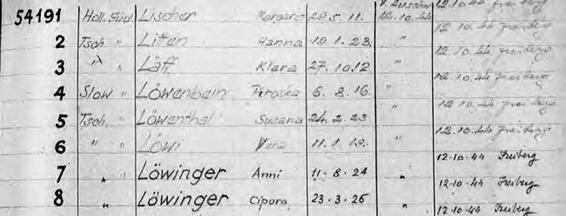 54191 Holl. Jüd. Lischer Margaret 20.5.11. 12.10.44
2 Tsch. " Litten Hanna 19.1.23. " 12.10.44 Freiberg
3 " " Läff Klara 27.10.12 " 12.10.44 Freiberg
4 Slow " Löwenbein Piroska 6.8.16. " 12.10.44 Freiberg
5 Tsch. " Löwenthal Susana 24.2.23 " 12.10.44 Freiberg
6 " " Löwi Vera 11.1.19. " 12.10.44 Freiberg
7 " " Löwinger Anni 11.8.24 " 12-10-44 Freiberg
8 " " Löwinger Cipora 23.3.26 " 12-10-44 Freiberg